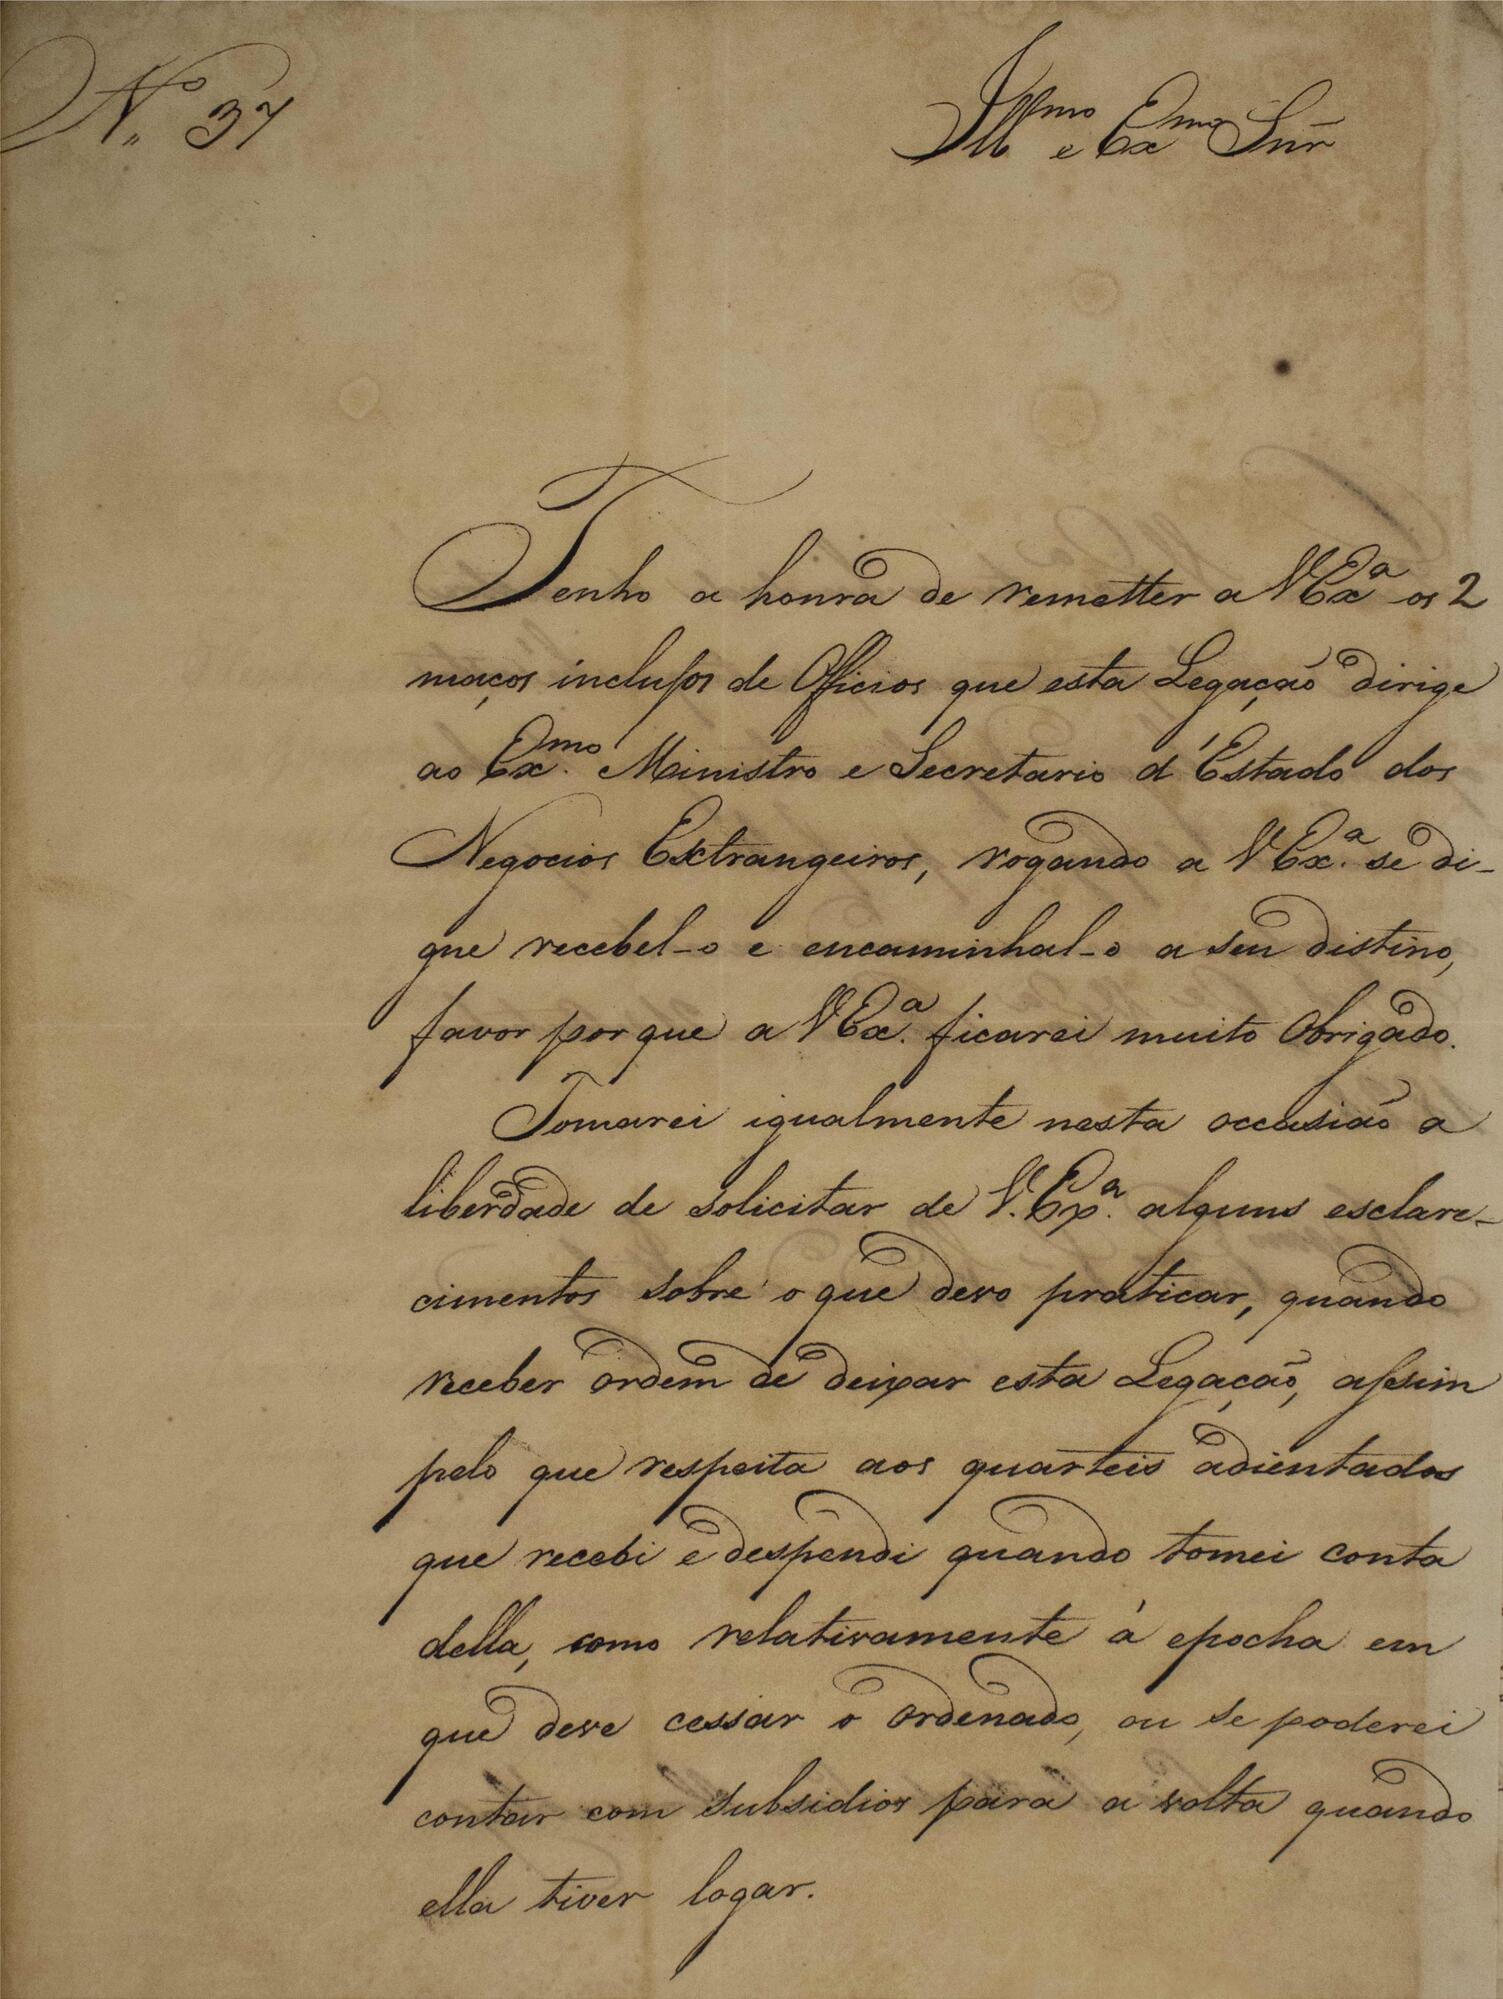 Nº 37
Illmo e Exmo Snr
Tenho a honra de remetter a VExª os 2
maços inclusos de Officios que esta Legação dirige
ao Exmo. Ministro e Secretario d'Estado dos
Negocios Extrangeiros, rogando a VExª. se di-
gne recebel-o e encaminhal-o a seu distino,
favor por que a VExª. ficarei muito obrigado.
Tomarei igualmente nesta occasião a
liberdade de solicitar de V.Exª. alguns esclare-
cimentos sobre o que devo praticar, quando
receber ordem de deixar esta Legação, assim
pelo que respeita aos quarteis adientados
que recebi e despendi quando tomei conta
della, como relativamente á epocha em
que deve cessar o ordenado, ou se poderei
contar com subsidios para a volta quando
ella tiver logar.